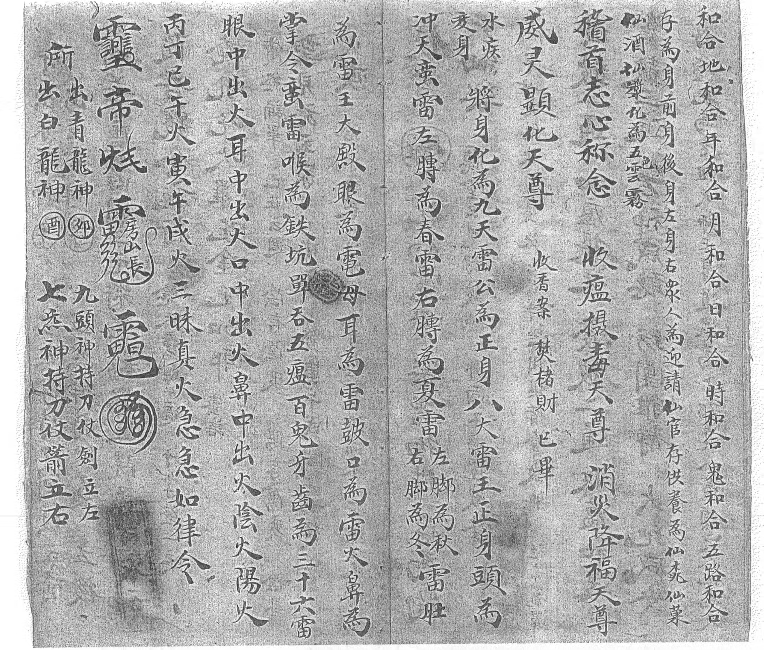 和合地和合年和合月和合日和合時和合鬼和合五路和合
存為身前身後身左身右衆人為迎請仙官存供養為仙桃仙菓
仙酒仙漿化為五色雲霧
稽首志心称念 收瘟摂毒天尊 消災降福天尊
威灵顯化天尊 收香案 焚楮財 已畢
水疾 变身 將身化為九天雷公為正身八大雷王正身頭為
冲天蛮雷左膊為春雷右膊為夏雷左脚為秋 右脚為冬雷肚
為雷王大殿眼為電母耳為雷鼓口為雷火鼻為
掌令蛮雷喉為鉄坑單吞五瘟百鬼牙齒為三十六雷
眼中出火耳中出火口中出火鼻中出火陰火陽火
丙丁巳午火寅午戌火三昧真火急急如律令
帝
所出青龍神卯 九頭神持刀仗劍立左
出白龍神酉 七煞神持刀仗箭立右